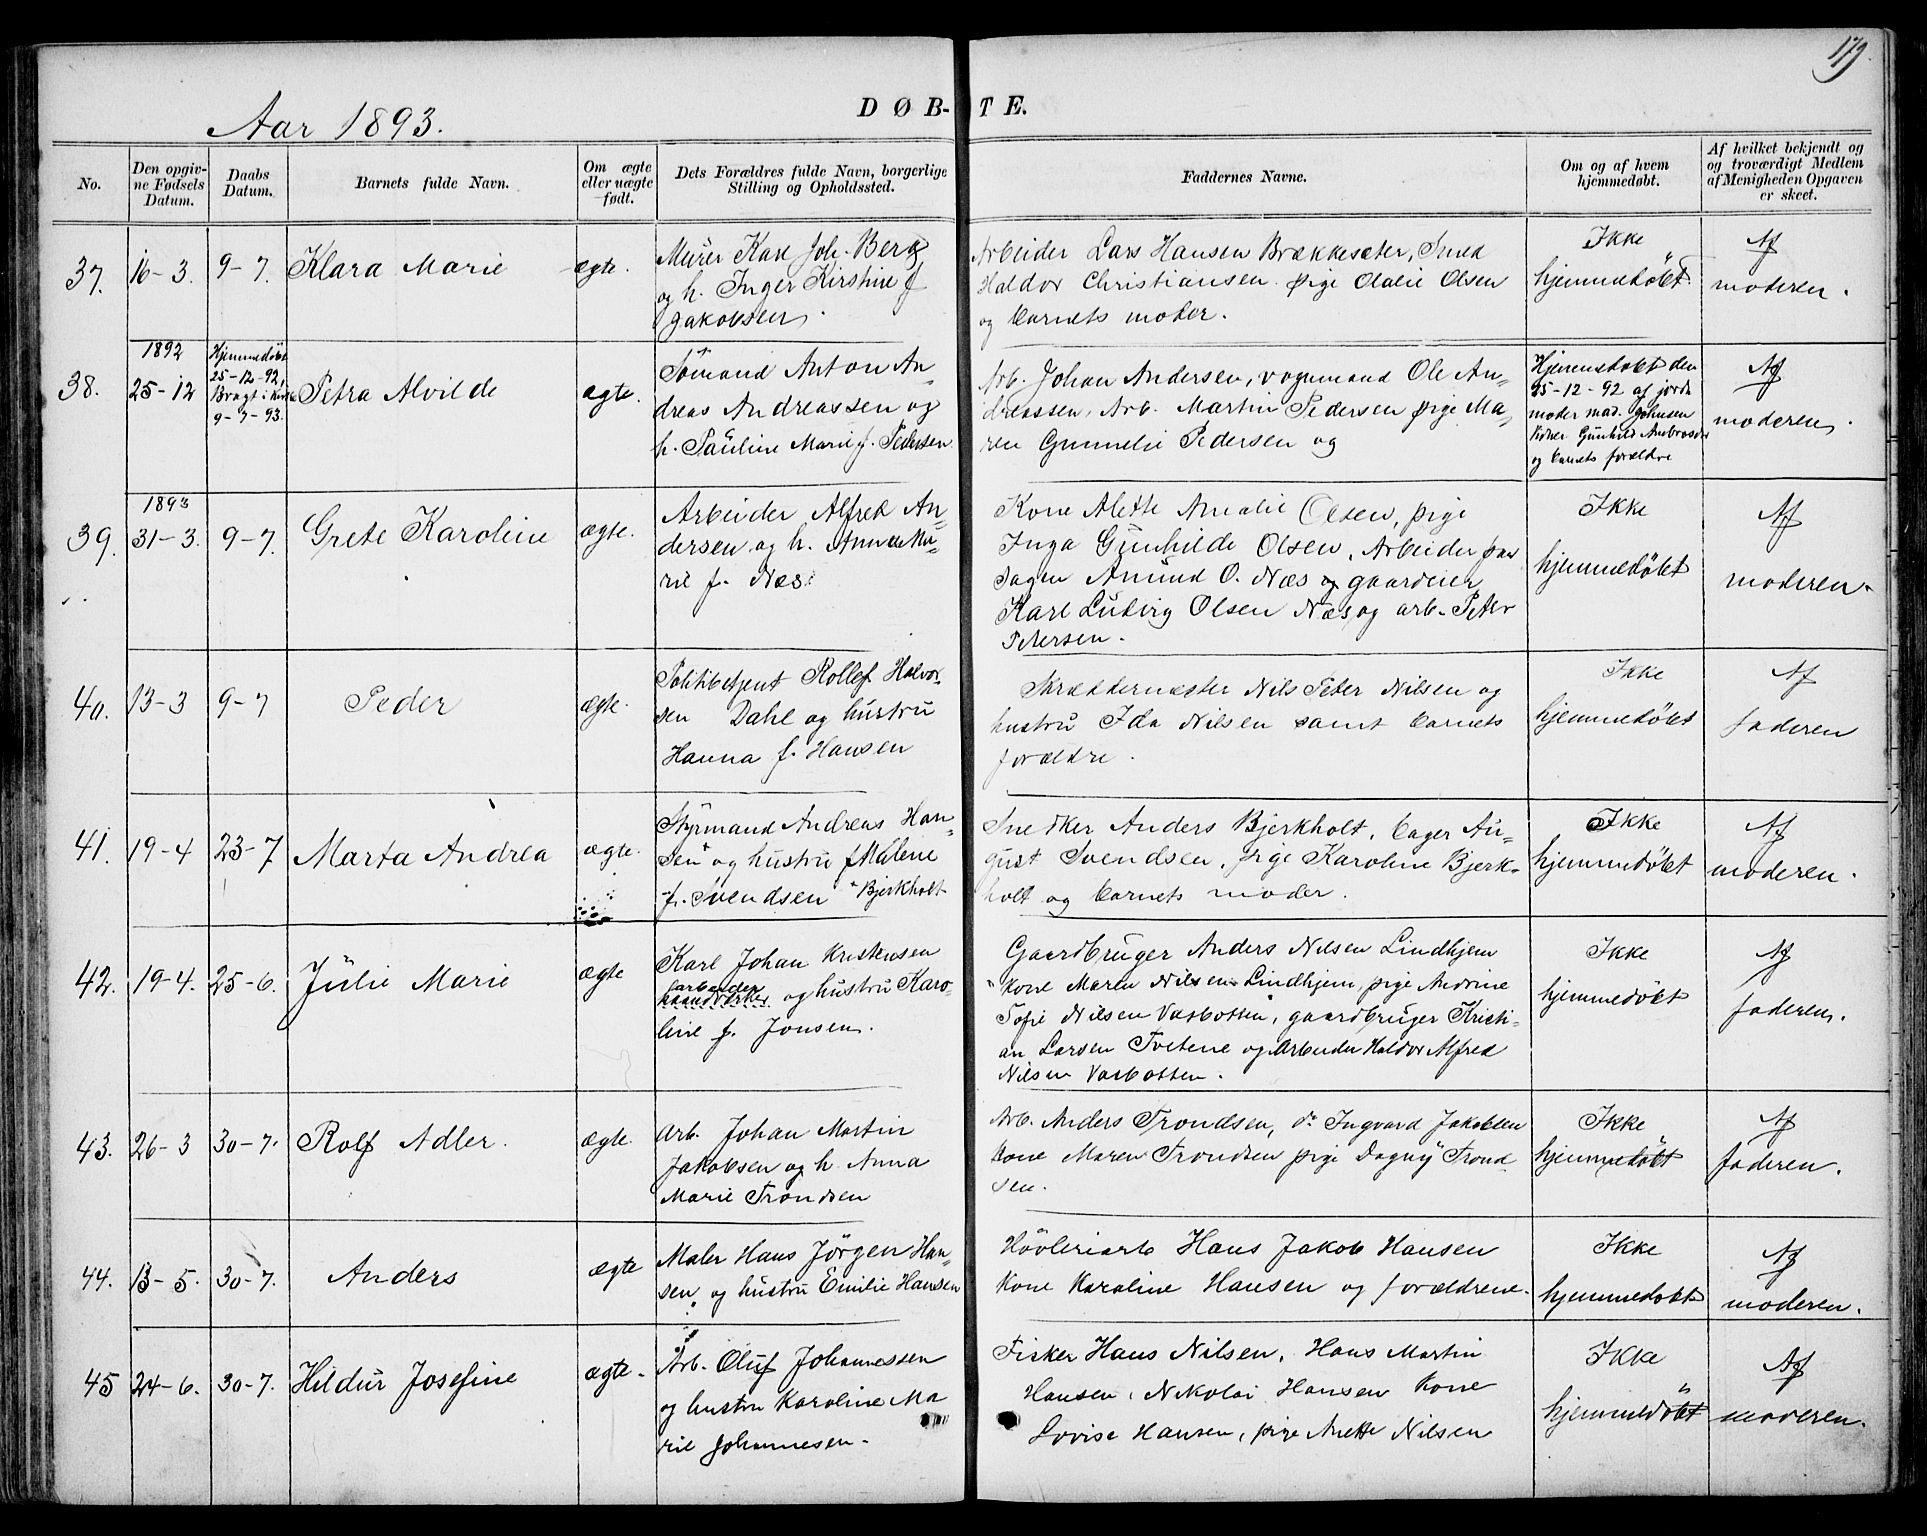 179.
Aar 1893.
DØB-TE.
No.
Den opgiv-
ne Fødsels
Datum.
Daabs
Datum.
Barnets fulde Navn.
Om ægte
eller uægte
født.
Dets Forældres fulde Navn, borgerlige
Stilling og Opholdssted.
Faddernes Navne.
Om og af hvem
hjemmedøbt.
Af hvilket bekjendt og
og troværdigt Medlem
af Menigheden Opgaven
er skeet.
37. 16-3. 9-7. Klara Marie ægte.
Murer Karl Joh. Berg
og h. Inger Kirstine f
Jakobsen.
Arbeider Lars Hansen Brækkesæter, Smed
Haldor Christiansen. Pige Olalie Olsen
og barnets moder.
Ikke
hjemmedøbt.
Af
moderen.
38. 1892
25-12
Hjemmedøbt
25-12-92,
Bragt i kirke
9-7-93.
Petra Alvilde ægte.
Sømand Anton An-
dreas Andreassen og
h. Pauline Marie f. Pedersen
Arb. Johan Andersen, vognmand Ole An-
dreassen, Arb. Martin Pedersen pige Ma-
ren Gunnelie Pedersen og
Hjemmedøbt den
25-12-92 af jord-
moder mad. Johnsen
Vidner Gunhild
og barnets forældre
Af
moderen.
39. 1893
31-3. 9-7. Grete Karoline ægte.
Arbeider Alfred An-
dersen og h. Anne Ma-
rie f. Næs.
Kone Alette Amalie Olsen, pige
Inga Gunhilde Olsen, Arbeider paa
sagen Amund O. Næs og gaardeier
Karl Ludvig Olsen Næs og arb. Peter
Petersen.
Ikke
hjemmedøbt
Af
moderen.
40. 13-3 9-7 Peder ægte.
Politibetjent Rollef Halvor-
sen Dahl og hustru
Hanna f. Hansen
Skræddermester Nils Peter Nilsen og
hustru Ida Nilsen samt barnets
forældre.
Ikke
hjemmedøbt
Af
faderen
41. 19-4 23-7 Marta Andrea ægte.
Styrmand Andreas Han-
sen og hustru Malene
f. Svendsen Bjerkholt
Snedker Anders Bjerkholt, bager Au-
gust Svendsen, pige Karoline Bjerk-
holt og barnets moder.
Ikke
hjemmedøbt
Af
moderen.
42. 19-4. 25-6. Julie Marie ægte
Karl Johan Kristensen
arbeider
haandverker og hustru Karo-
line f. Jonsen.
Gaardbruger Anders Nilsen Lindhjem
kone Maren Nilsen Lindhjem, pige Andrine
Sofie Nilsen Vasbotten, gaardbruger Kristi-
an Larsen Tvetene og Arbeider Haldor Alfred
Nilsen Vasbotten.
Ikke
hjemmedøbt
Af
faderen.
43. 26-3 30-7. Rolf Adler. ægte.
Arb. Johan Martin
Jakobsen og h. Anna
Marie Trondsen
Arb. Anders Trondsen, do Ingvard Jakobsen
kone Maren Trondsen pige Dagny Trond
sen.
Ikke
hjemmedøbt
Af
faderen.
44. 13-5. 30-7. Anders ægte
Maler Hans Jørgen Han-
sen og hustru Emilie Hansen
Høvleriarb Hans Jakob Hansen
kone Karoline Hansen og forældrene.
Ikke
hjemmedøbt
Af
moderen.
45 24-6. 30-7. Hildur Josefine ægte.
Arb. Oluf Johannessen
og hustru Karoline Ma
rie Johannesen.
Fisker Hans Nilsen, Hans Martin
Hansen, Nikolai Hansen kone
Lovise Hansen, pige Anette Nilsen
Ikke
hjemmedøbt
Af
moderen.